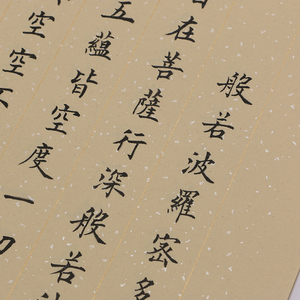 般若波羅密多
在菩薩行深般若
五蘊皆空度一切
空空不